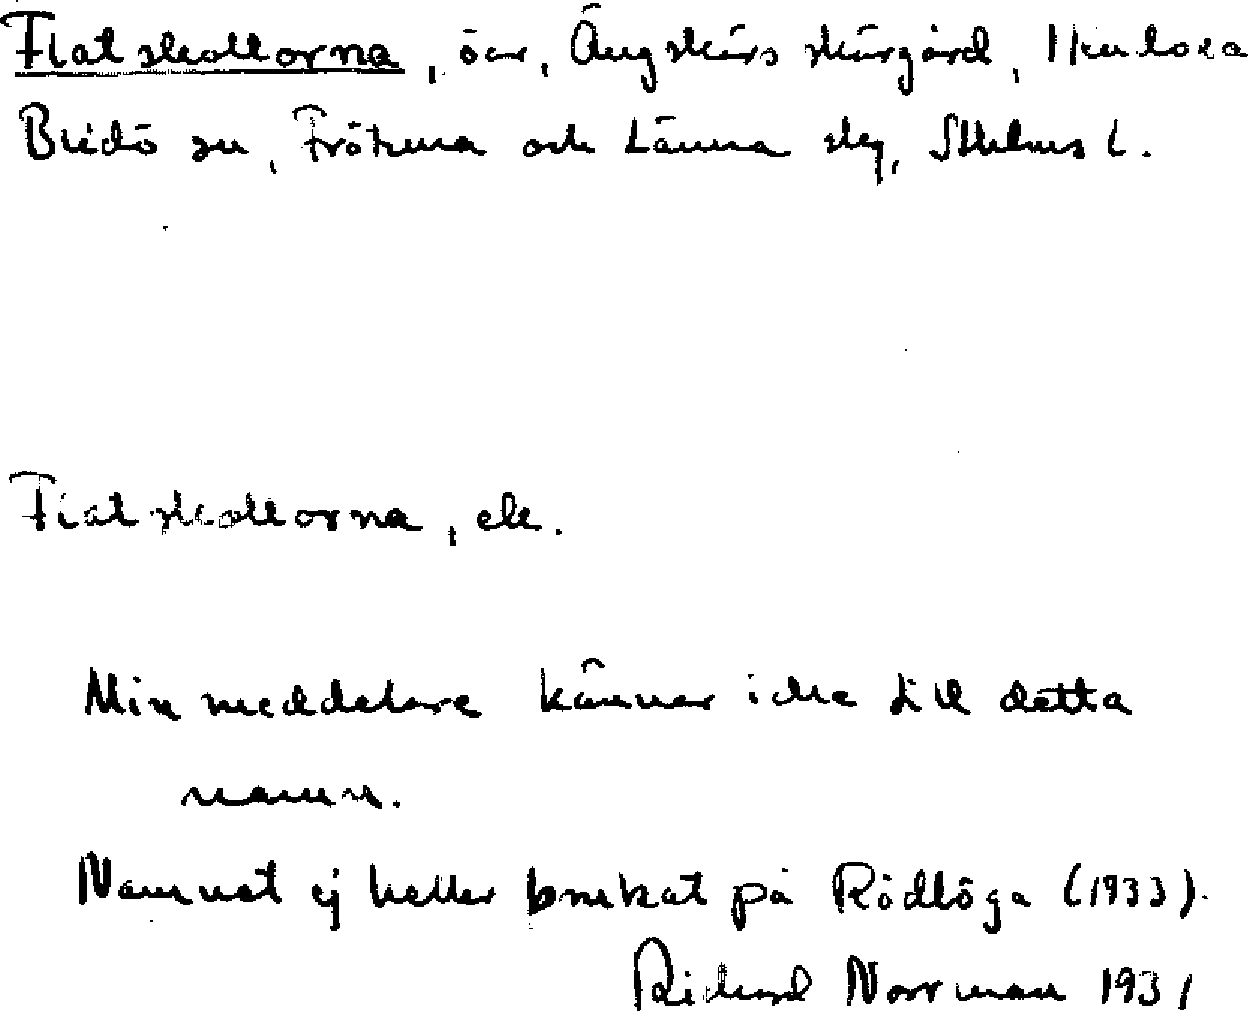 Flatskallorna, öar, Ängskärs skärgård,
Blidö sn, Frötuna och Länna skg, Sthlms l.
Flatskallorna, ek.
Min meddelare känner icke till detta
namn.
Namnet ej heller brukat på Rödlöga (1933).
Richard Norrman 1931